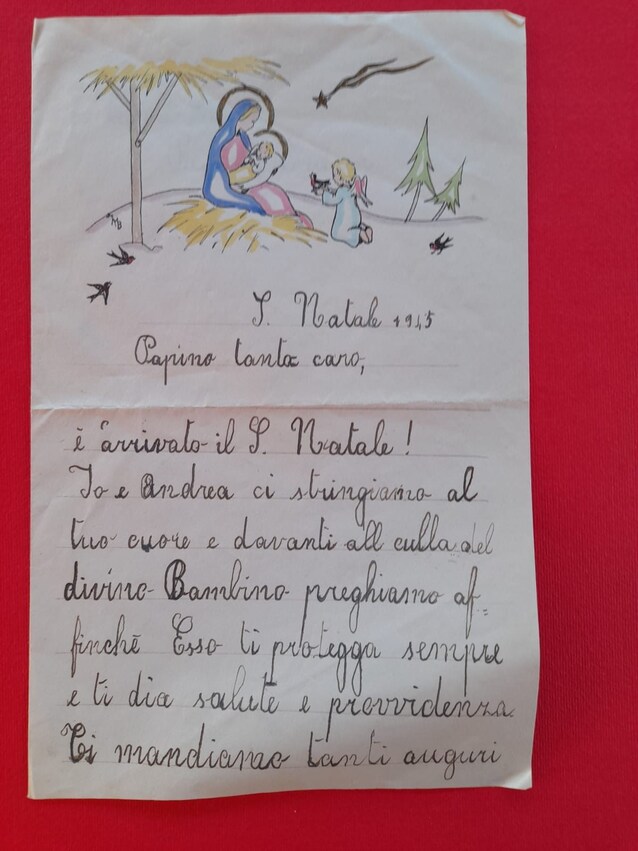 MB
S. Natale 1945
Papino tanto caro,
è arrivato il S. Natale!
Io e Andrea ci stringiamo al
tuo cuore e davanti all culla del
divino Bambino preghiamo af=
finchè Esso ti protegga sempre
e ti dia salute e provvidenza
Ti mandiamo tanti auguri